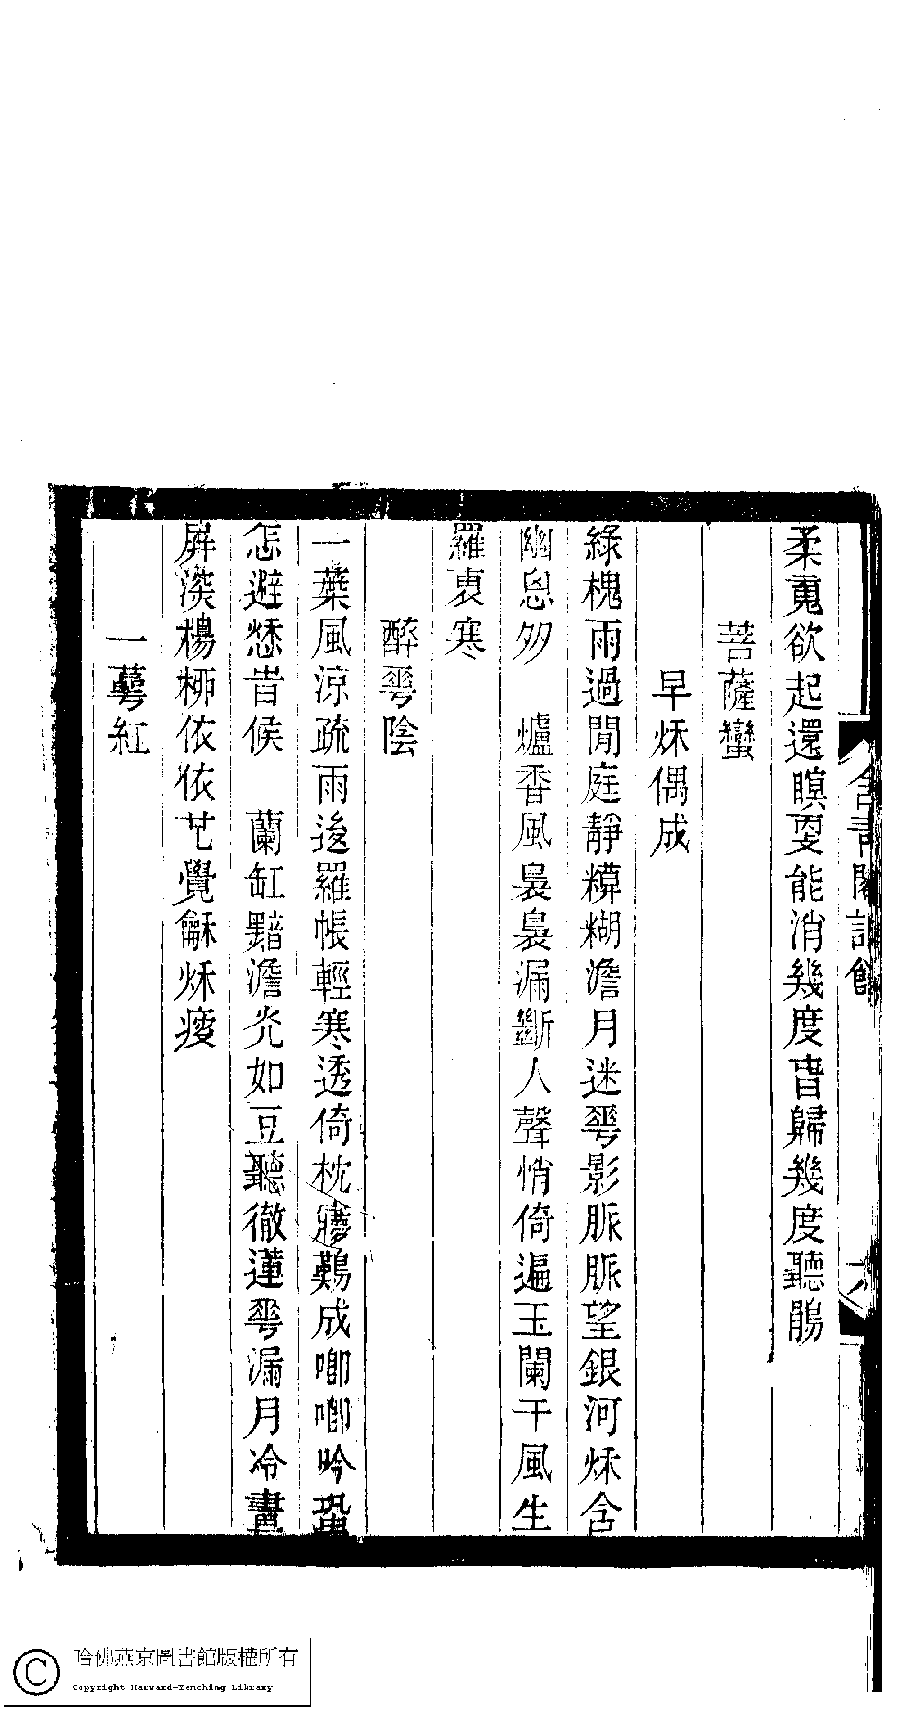 柔䰟欲起還瞑耍能消幾度春歸幾度聽鵑
菩薩蠻
早秌偶成
綠槐雨過閒庭靜糢糊澹月迷蕚影脈脈望銀河秌含
幽恖多 爐香風裊裊漏斷人聲悄倚遍玉闌干風生
羅衷寒
醉蕚陰
一葉風涼疏雨後羅帳輕寒透倚枕㝱難成喞喞吟蛩
怎避愁時候 蘭缸黯澹光如豆聽徹蓮蕚漏月冷畫
屏深楊桺依依廿覺龢秌瘦
一蕚紅
含書閣詩餘
六
哈佛燕京圖書館版權所有
Copyright Harvard-Yenching Library